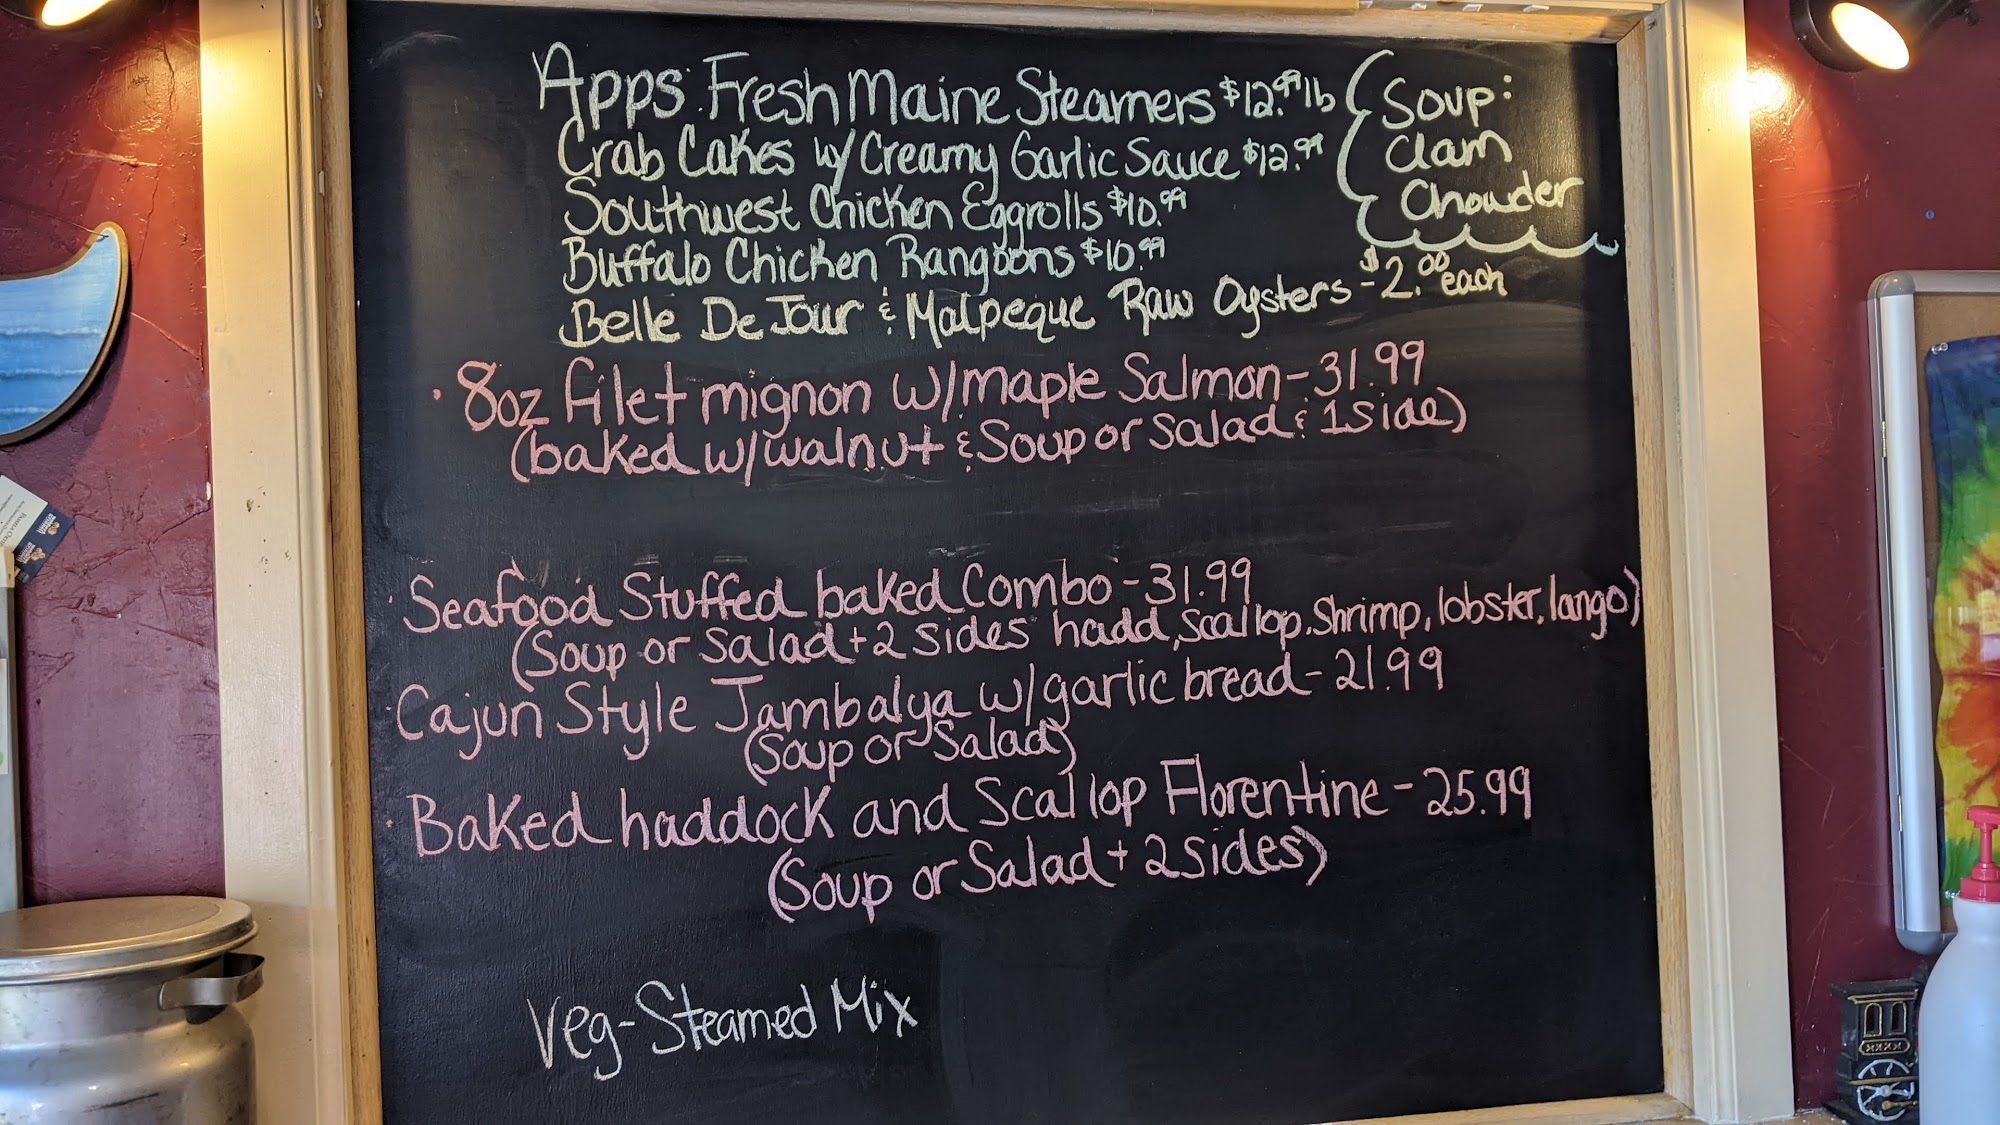 Apps: Fresh Maine Steamers $12.99 lb
Crab Cakes w/ Creamy Garlic Sauce $12.99
Southwest Chicken Eggrolls $10.99
Buffalo Chicken Rangoons $10.99
Belle De Jour & Malpeque Raw Oysters - $2.00 each
Soup:
Clam
Chowder
· 8oz filet mignon w/maple Salmon - 31.99
(baked w/walnut & Soup or Salad & 1 side)
· Seafood Stuffed baked Combo - 31.99
(Soup or Salad + 2 sides hadd, scallop, Shrimp, lobster, lango)
· Cajun Style Jambalya w/garlic bread - 21.99
(Soup or Salad)
· Baked haddock and Scallop Florentine - 25.99
(Soup or Salad + 2 sides)
Veg - Steamed Mix